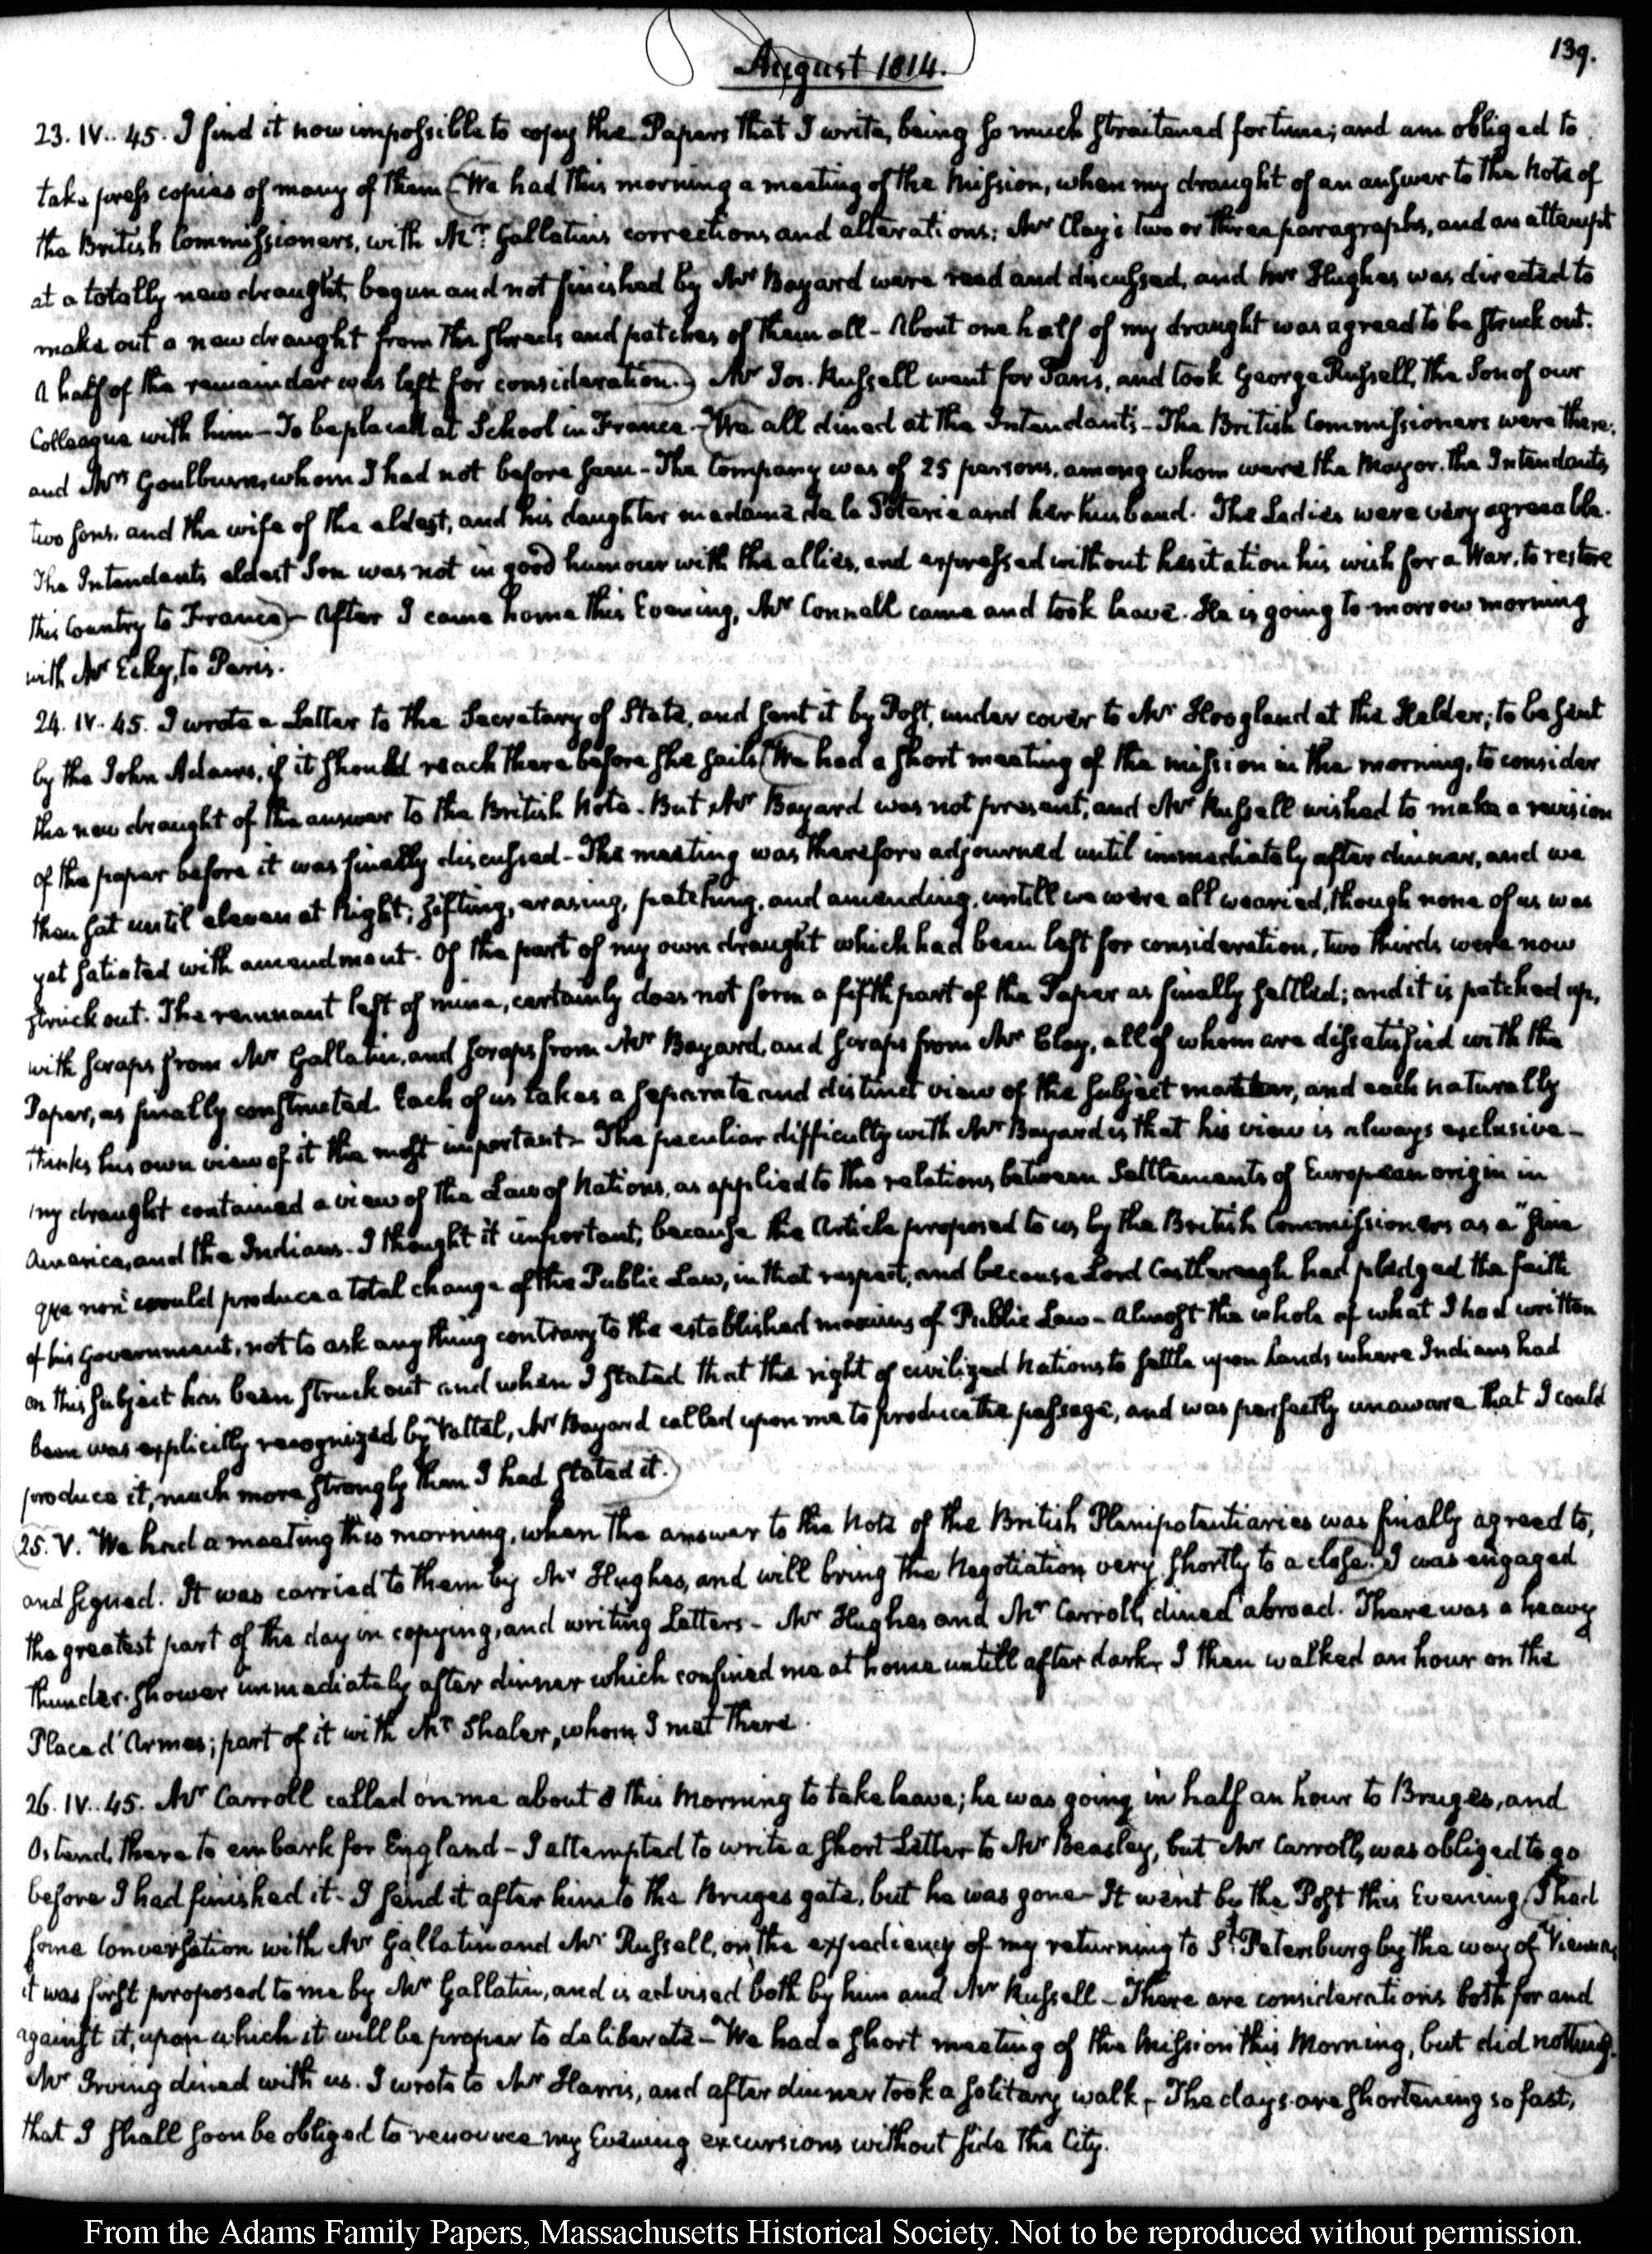 August 1814.
139.
23. IV.. 45. I find it now impossible to copy the Papers that I write, being so much straitened for time; and am obliged to
take press copies of many of them. (We had this morning a meeting of the Mission, when my draught of an answer to the Note of
the British Commissioners, with Mr. Gallatin's corrections and alterations; Mr Clay's two or three paragraphs, and an attempt
at a totally new draught, begun and not finished by Mr Bayard were read and discussed, and Mr Hughes was directed to
make out a new draught from the shreds and patches of them all - About one half of my draught was agreed to be struck out.
A half of the remainder was left for consideration.) Mr Jos. Russell went for Paris, and took George Russell, the Son of our
Colleague with him - To be placed at School in France - (We all dined at the Intendant's - The British Commissioners were there;
and Mrs Goulburn, whom I had not before seen - The Company was of 25 persons, among whom were the Mayor. The Intendants
two sons, and the wife of the eldest, and his daughter madame de la Poterie and her husband. The Ladies were very agreeable.
The Intendants eldest Son was not in good humour with the allies, and expressed without hesitation his wish for a War, to restore
this Country to France) - After I came home this Evening, Mr Connell came and took leave. He is going to-morrow morning
with Mr Ecky, to Paris.
24. IV. 45. I wrote a Letter to the Secretary of State, and sent it by Post, under cover to Mr Hoogland at the Helder; to be sent
by the John Adams, if it should reach there before she sails. (We had a short meeting of the mission in the morning, to consider
the new draught of the answer to the British Note. But Mr Bayard was not present, and Mr Russell wished to make a revision
of the paper before it was finally discussed - The meeting was therefore adjourned until immediately after dinner, and we
then sat until eleven at Night; sifting, erasing, patching, and amending, untill we were all wearied, though none of us was
yet satiated with amendment. Of the part of my own draught which had been left for consideration, two thirds were now
struck out. The remnant left of mine, certainly does not form a fifth part of the Paper as finally settled; and it is patched up,
with scraps from Mr Gallatin, and scraps from Mr Bayard, and scraps from Mr Clay, all of whom are dissatisfied with the
Paper, as finally constructed. Each of us takes a separate and distinct view of the subject matter, and each naturally
thinks his own view of it the most important - The peculiar difficulty with Mr Bayard is that his view is always exclusive -
my draught contained a view of the Law of Nations, as applied to the relations between Settlements of European origin in
America, and the Indians - I thought it important, because the Article proposed to us by the British Commissioners as a "sine
qua non" would produce a total change of the Public Law, in that respect, and because Lord Castlereagh had pledged the faith
of his Government, not to ask any thing contrary to the established maxims of Public Law - Almost the whole of what I had written
on this subject has been struck out and when I stated that the right of civilized Nations to settle upon Lands where Indians had
been was explicitly recognized by Vattel, Mr Bayard called upon me to produce the passage, and was perfectly unaware that I could
produce it, much more strongly than I had stated it.)
(25. V. We had a meeting this morning, when the answer to the Note of the British Plenipotentiaries was finally agreed to,
and signed. It was carried to them by Mr Hughes, and will bring the Negotiation very shortly to a close.) I was engaged
the greatest part of the day in copying, and writing Letters - Mr Hughes and Mr Carroll, dined abroad. There was a heavy
thunder-shower immediately after dinner which confined me at home untill after dark. I then walked an hour on the
Place d'Armes; part of it with Mr Shaler, whom I met there.
26. IV.. 45. Mr Carroll called on me about 8 this Morning to take leave; he was going in half an hour to Bruges, and
Ostend, there to embark for England - I attempted to write a short Letter to Mr Beasley, but Mr Carroll, was obliged to go
before I had finished it - I send it after him to the Bruges gate, but he was gone - It went by the Post this Evening. (I had
some Conversation with Mr Gallatin and Mr Russell, on the expediency of my returning to St Petersburg by the way of Vienna,
it was first proposed to me by Mr Gallatin, and is advised both by him and Mr Russell - There are considerations both for and
against it, upon which it will be proper to deliberate - We had a short meeting of the Mission this Morning, but did nothing.)
Mr Irving dined with us. I wrote to Mr Harris, and after dinner took a solitary walk - The days are shortening so fast,
that I shall soon be obliged to renounce my Evening excursions without side the City.
From the Adams Family Papers, Massachusetts Historical Society. Not to be reproduced without permission.